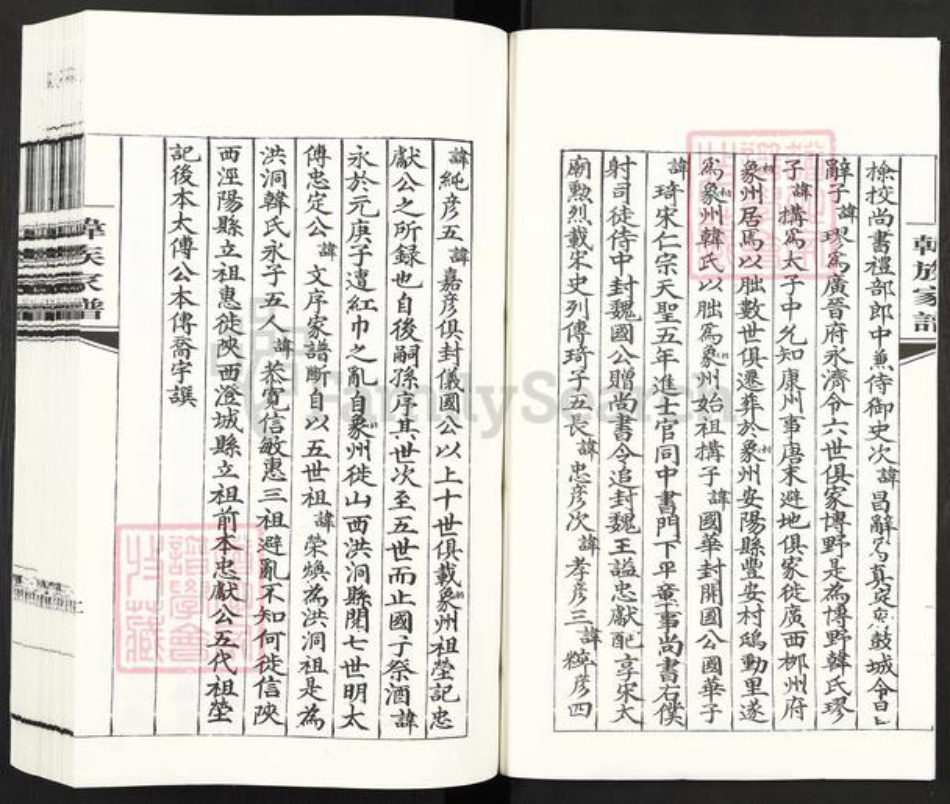 韓族家譜
檢校尚書禮部郎中兼侍御史次諱昌辭為真定鼓城令昌
辭子諱璆為廣晉府永濟令六世俱家博野是為博野韓氏璆
子諱構為太子中允知康州事唐末避地俱家徙廣西柳州府
象州居焉以朏數世俱遷葬於象州安陽縣豐安村鴟動里遂
為象州韓氏以朏為象州始祖構子諱國華封開國公國華子
諱琦宋仁宗天聖五年進士官同中書門下平章事尚書右僕
射司徒侍中封魏國公贈尚書令追封魏王謚忠獻配享宋太
廟勲烈載宋史列傳琦子五長諱忠彥次諱孝彥三諱粹彥四
諱純彥五諱嘉彥俱封儀國公以上十世俱載象州祖塋記忠
獻公之所録也自後嗣孫序其世次至五世而止國子祭酒諱
永於元庚子遭紅巾之亂自象州徙山西洪洞縣閱七世明太
傅忠定公諱文序家譜斷自以五世祖諱榮煥為洪洞祖是為
洪洞韓氏永子五人諱恭寬信敏惠三祖避亂不知何徙信陝
西涇陽縣立祖惠徙陝西澄城縣立祖前本忠獻公五代祖塋
記後本太傅公本傳喬宇譔
FamilySearch